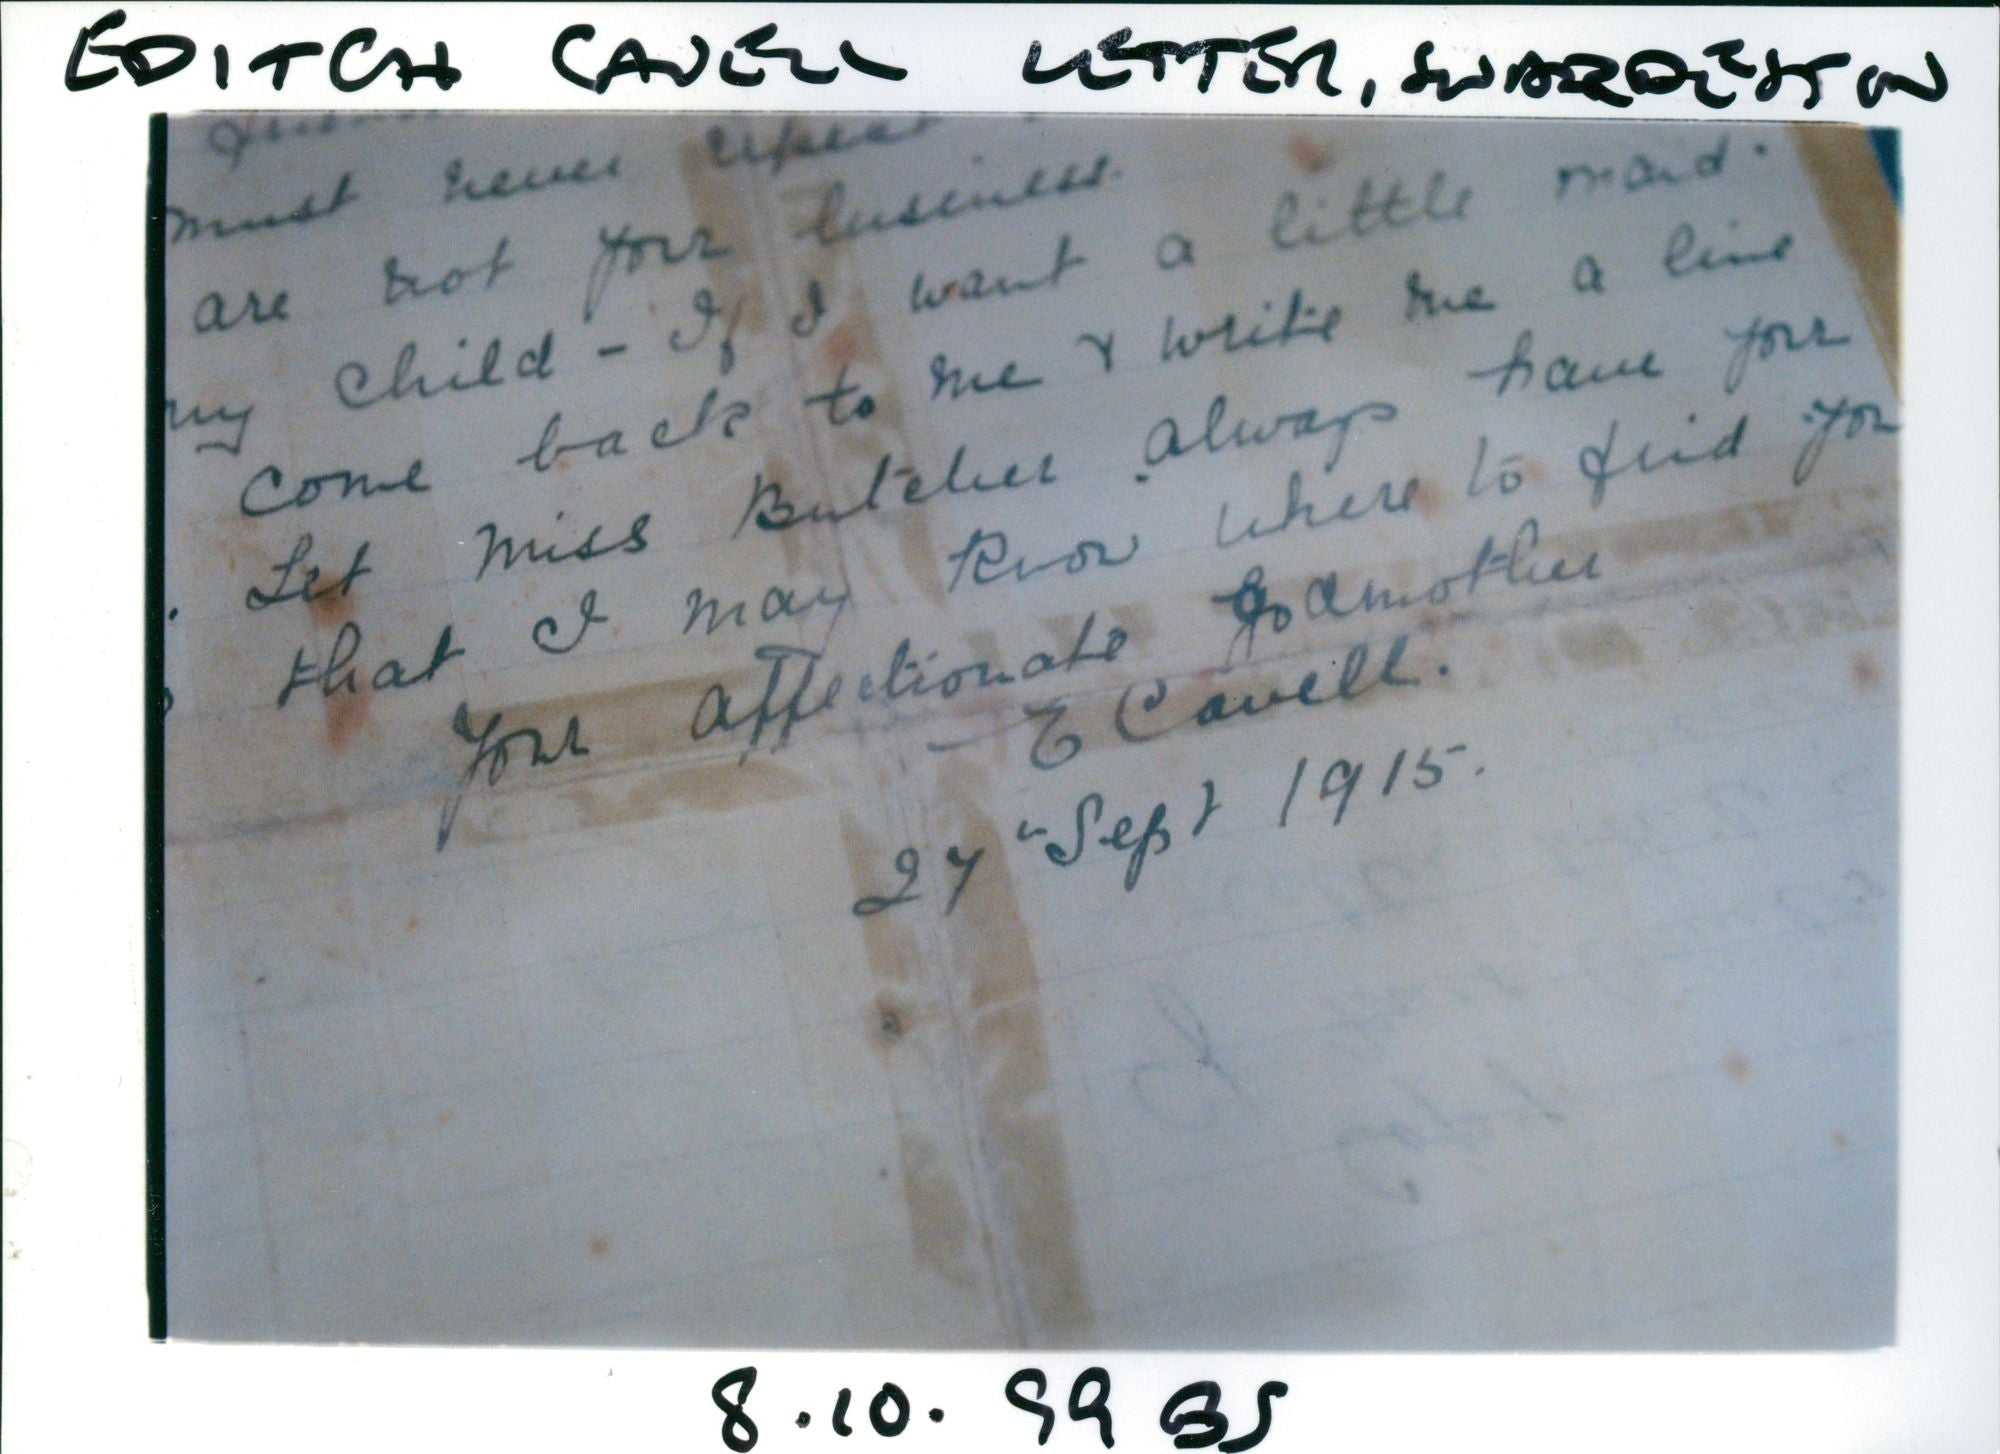 EDITCH CAVELL LETTER, SWARDESTON
must never repeat
are not your business.
my child - If I want a little maid.
come back to me & write me a line
Let Miss Butcher always have your
that I may know where to find you
Your affectionate godmother
E Cavell.
27th Sept 1915.
8.10.99 BS